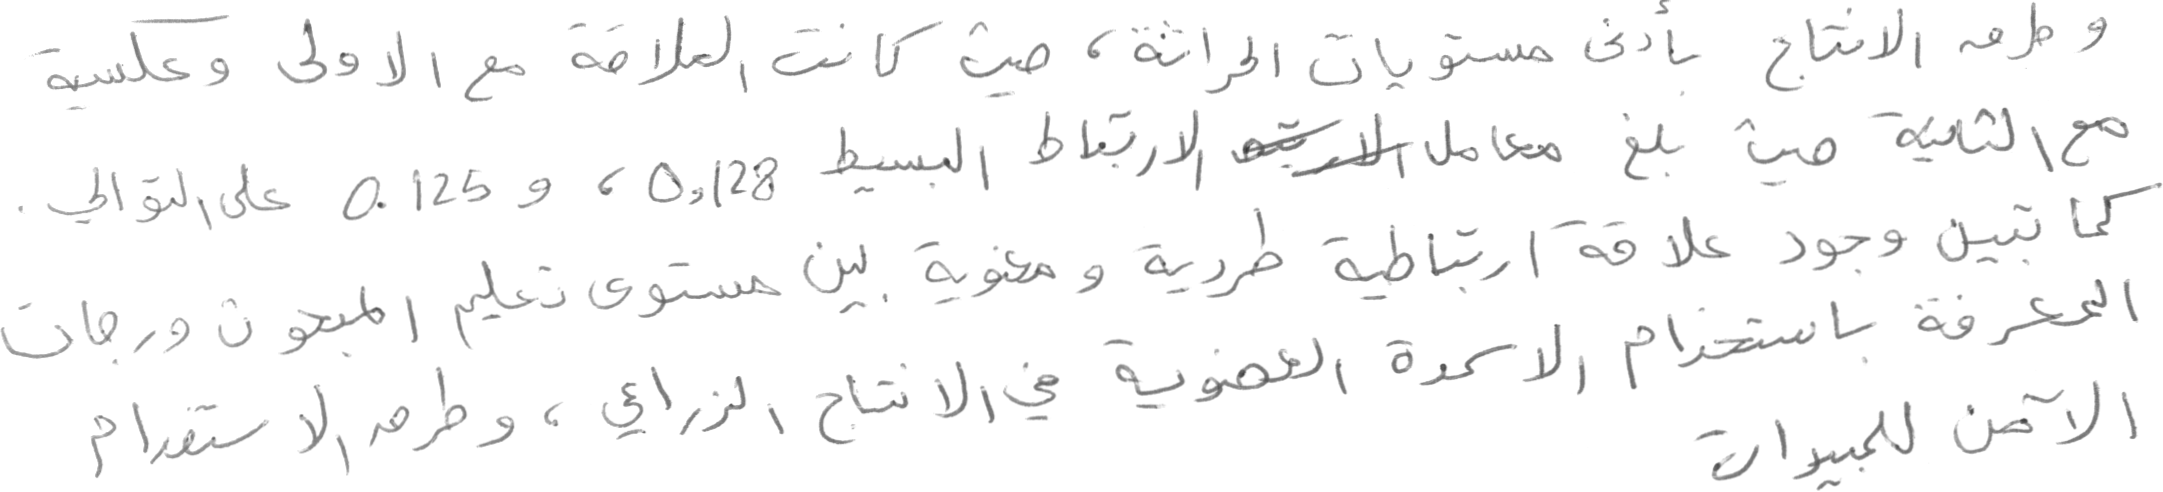 وطرق الانتاج بأدنى مستويات الحراثة، حيث كانت العلاقة مع الاولى وعكسية
مع الثانية حيث بلغ معامل الارتباط البسيط 0,128 ، و 0.125 على التوالي .
كما تبين وجود علاقة ارتباطية طردية ومعنوية بين مستوى تعليم المبحوث ودرجات
المعرفة باستخدام الاسمدة العضوية في الانتاج الزراعي ، وطرق الاستخدام
الآمن للمبيدات